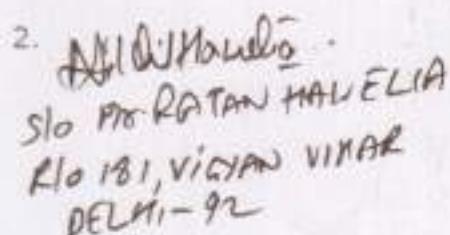 2.
S/o Mr RATAN HAWELIA
R/o 181, VIGYAN VIHAR
DELHI-92